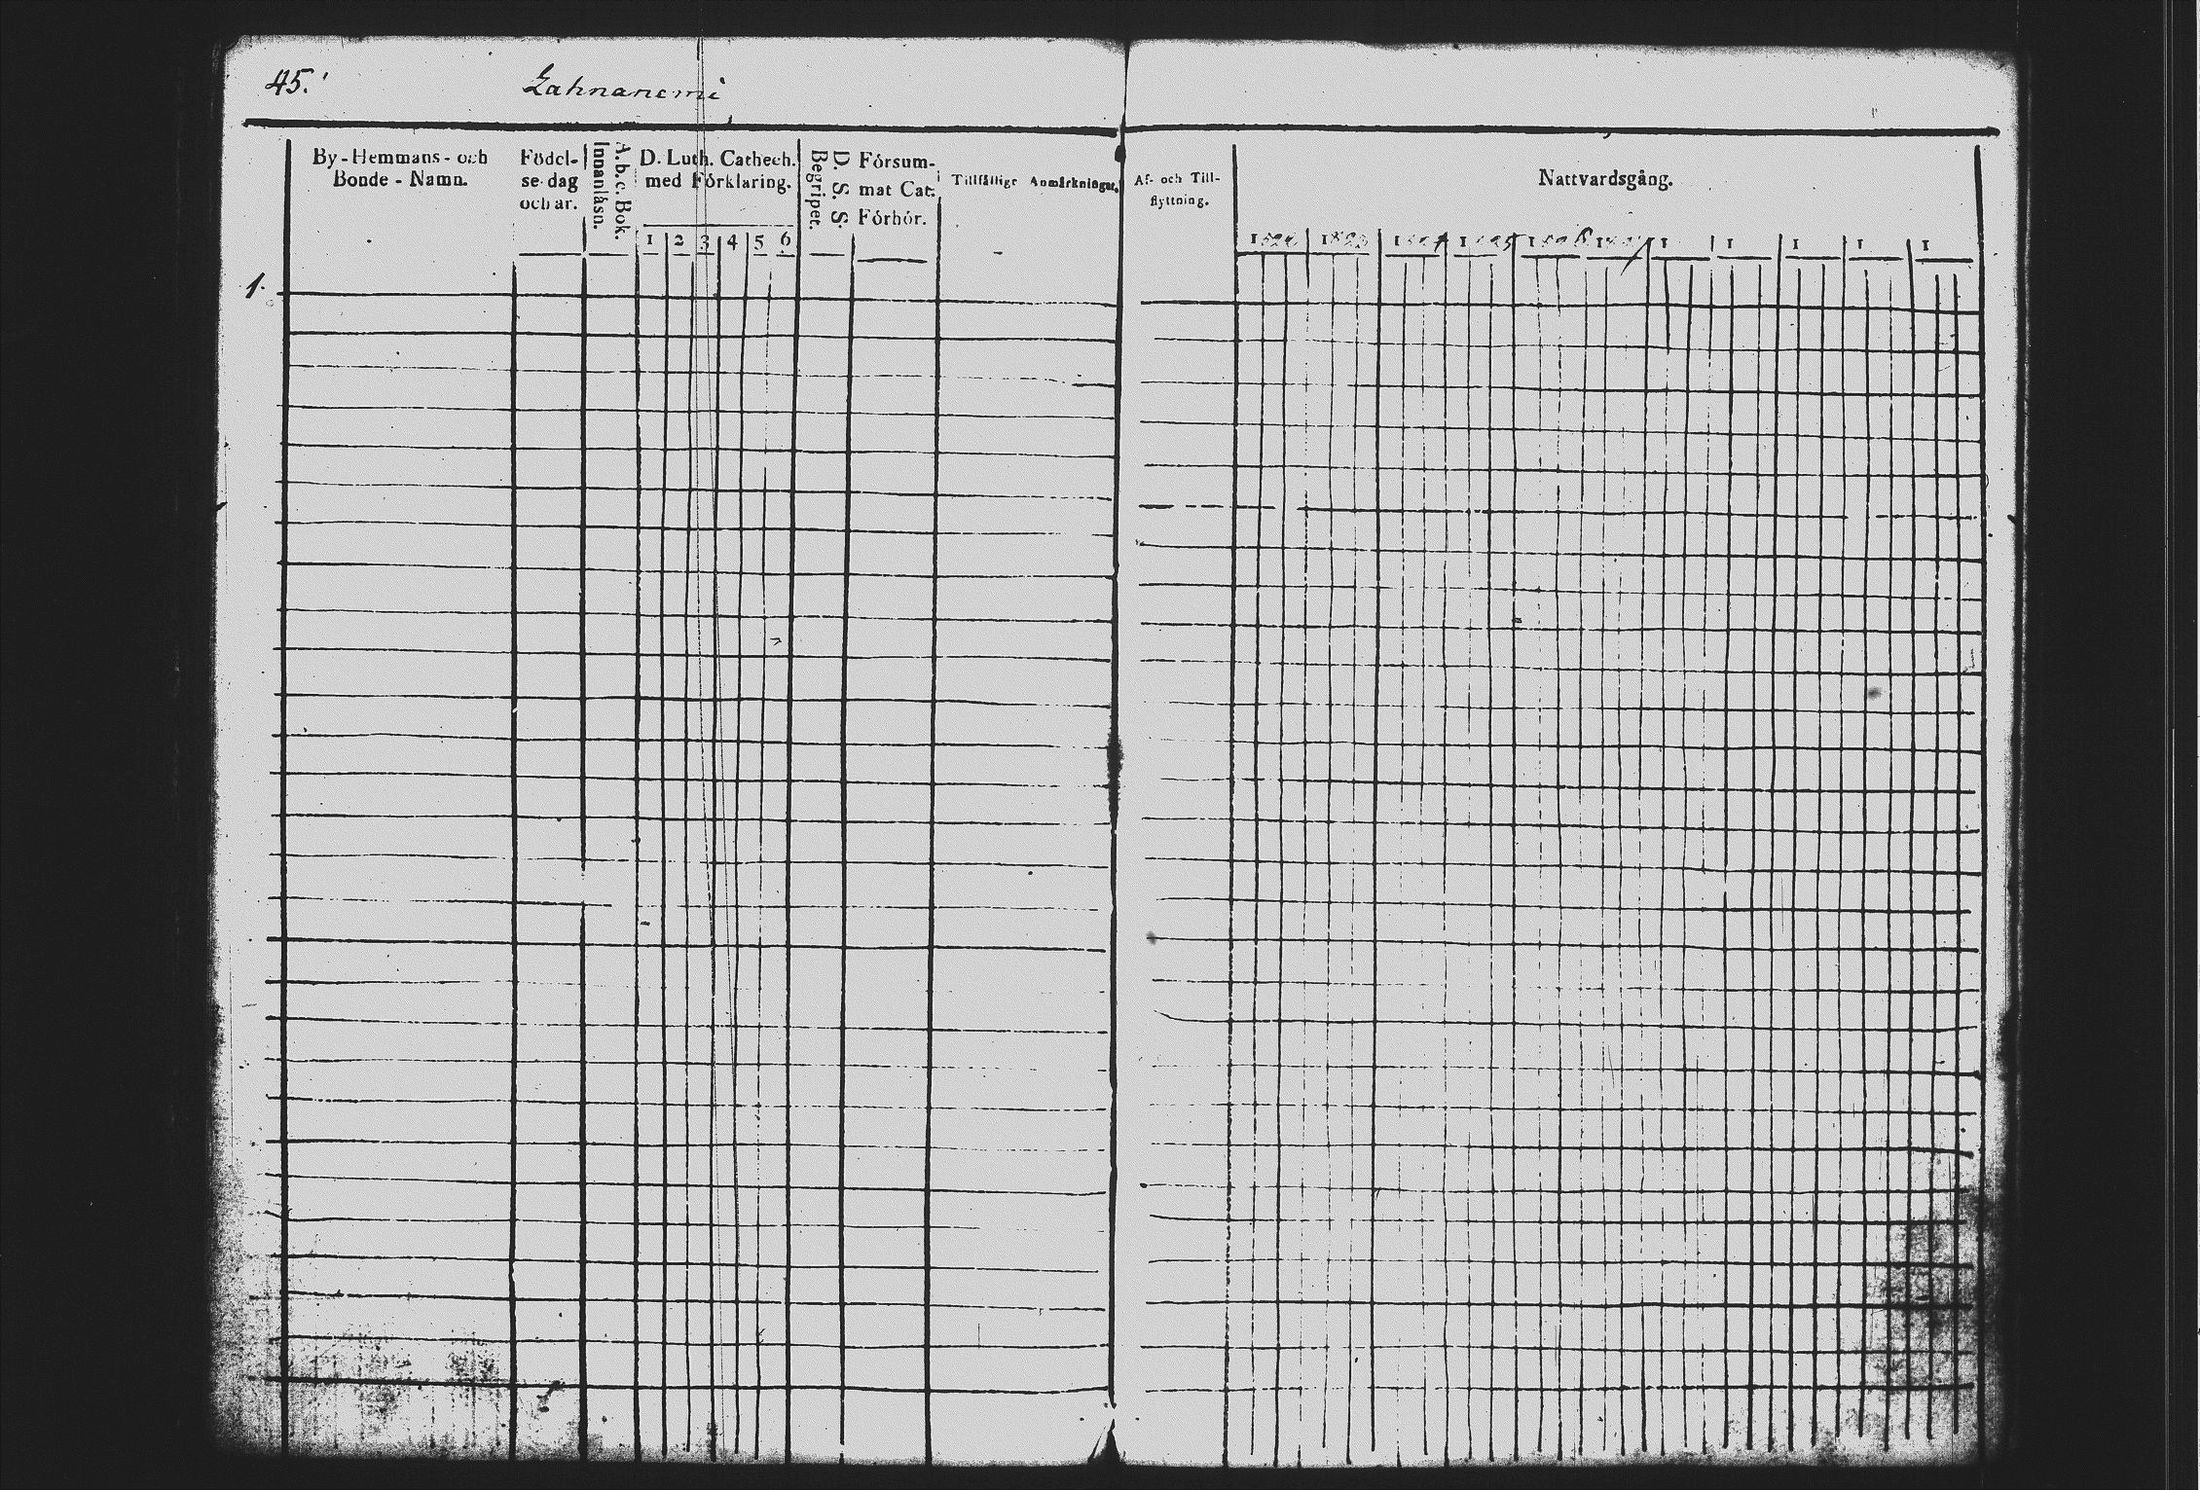 45.
Lahnanemi
By-Hemmans- och
Bonde-Namn.
Födel-
se-dag
och år.
A.b.c. Bok.
Innanläsn.
D. Luth. Cathech.
med Förklaring.
1 2 3 4 5 6
D. S. S.
Begripet.
Försum-
mat Cat.
Förhör.
Tillfällige Anmärkningar.
Af- och Till-
flyttning.
Nattvardsgång.
1823 1824 1825 1826 1 1 1 1 1
1.